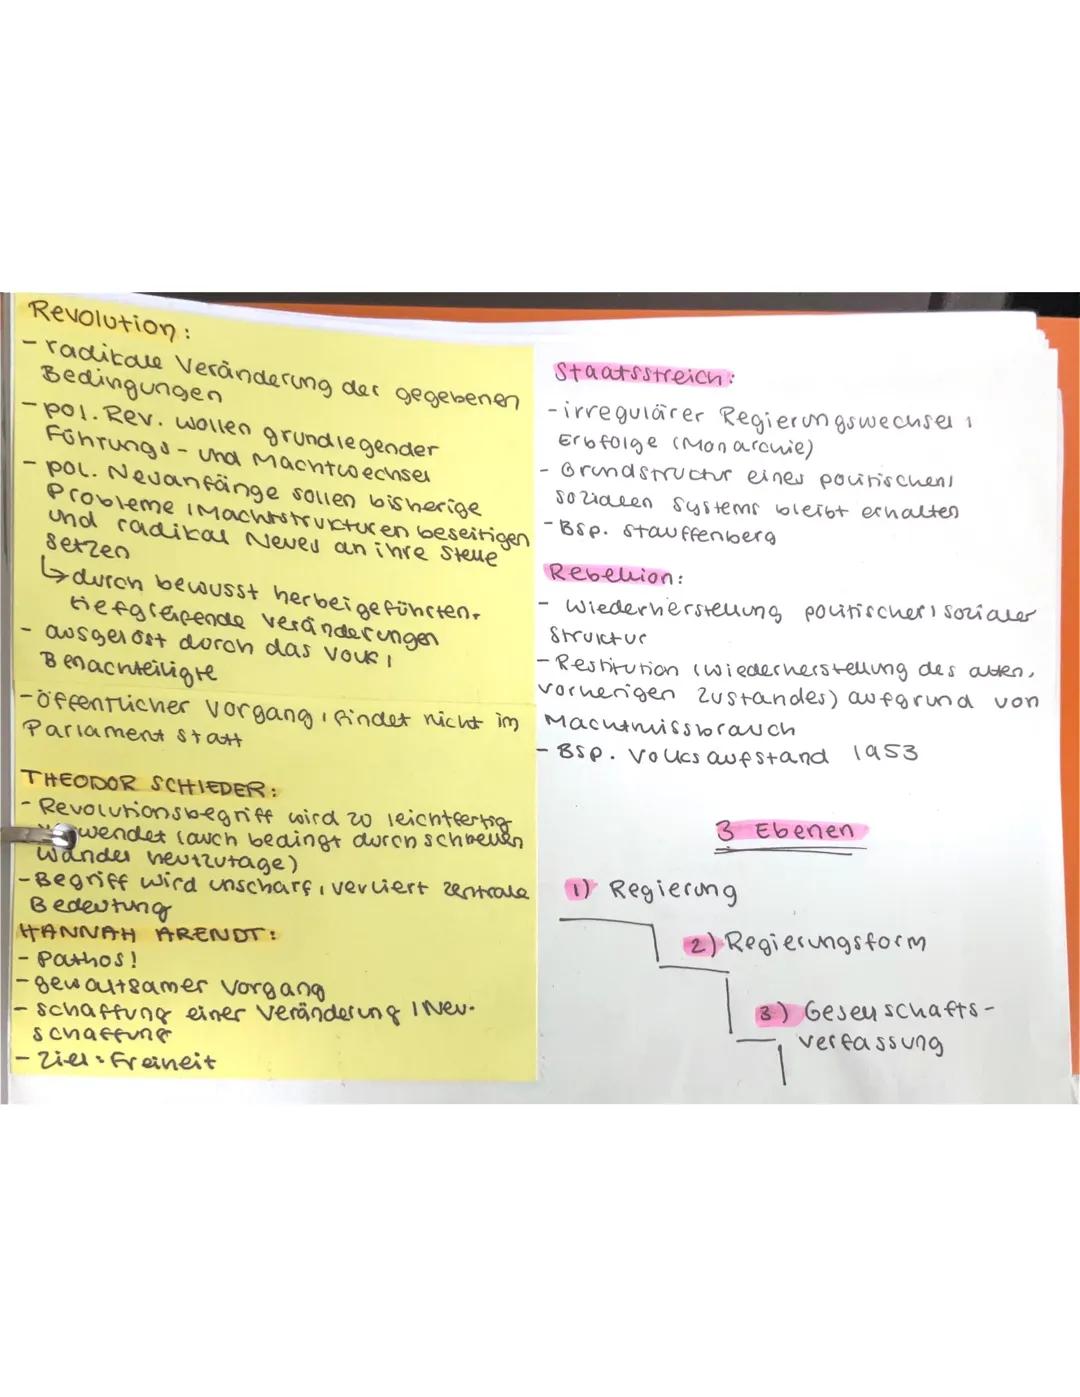 Revolution:
- radikale Veränderung der gegebenen
Bedingungen
- pol. Rev. wollen grundlegender
Führungs- und Machtwechsel
- pol. Neuanfänge sollen bisherige
Probleme, Machtstrukturen beseitigen
und radikal Neues an ihre Stelle
setzen
↳ durch bewusst herbeigeführten,
tiefgreifende Veränderungen
- ausgelöst durch das Volk,
Benachteiligte
- öffentlicher Vorgang, findet nicht im
Parlament statt
THEODOR SCHIEDER:
- Revolutionsbegriff wird zu leichtfertig
wendet (auch bedingt durch schnellen
Wandel heutzutage)
- Begriff wird unscharf, verliert zentrale
Bedeutung
HANNAH ARENDT:
- Pathos!
- gewaltsamer Vorgang
- Schaffung einer Veränderung / Neu-
schaffung
- Ziel: Freiheit
Staatsstreich:
- irregulärer Regierungswechsel,
Erbfolge (Monarchie)
- Grundstructur eines politischen/
sozialen Systems bleibt erhalten
- Bsp. Stauffenberg
Rebellion:
- Wiederherstellung politischer/sozialer
Struktur
- Restitution (Wiederherstellung des alten,
vorherigen Zustandes) aufgrund von
Machtmissbrauch
- Bsp. Volksaufstand 1953
3 Ebenen
1) Regierung
2) Regierungsform
3) Gesellschafts-
verfassung